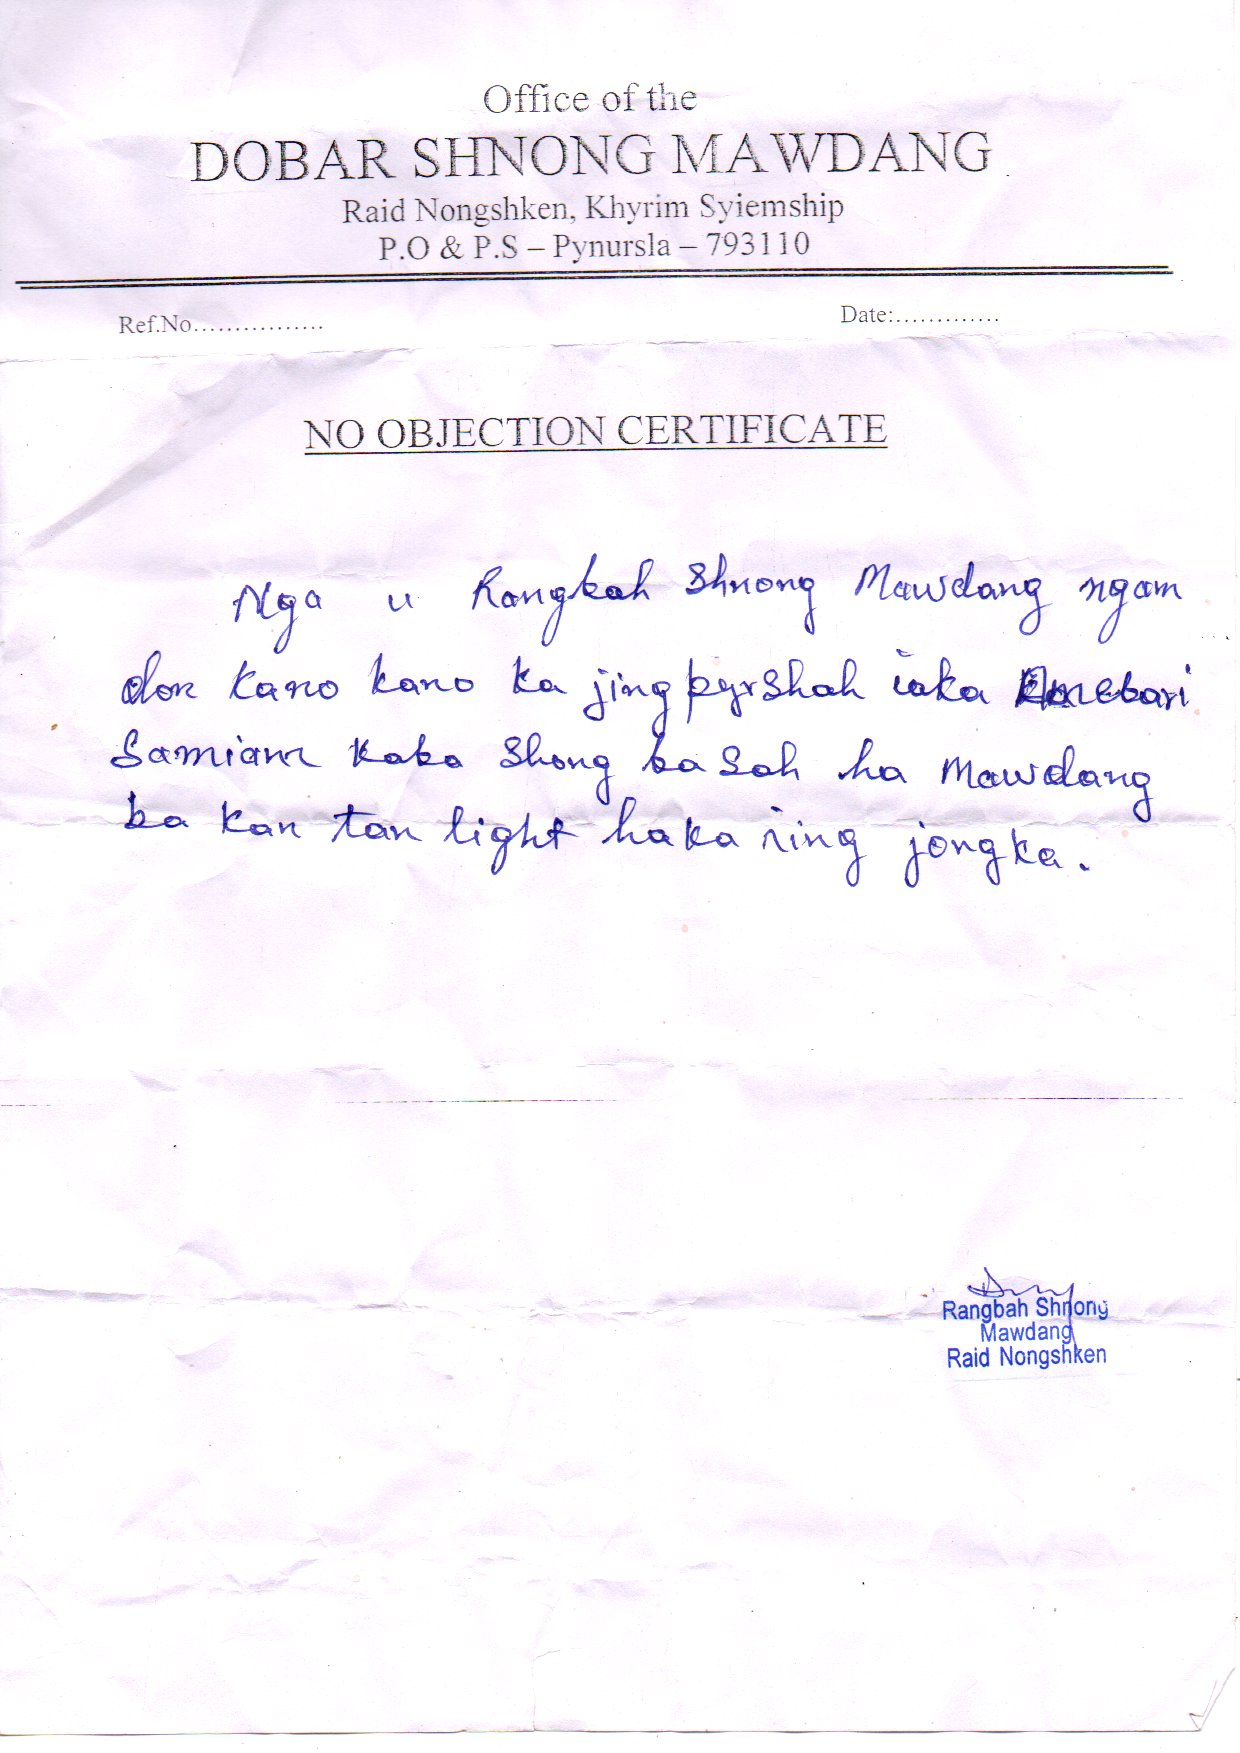 Office of the
DOBAR SHNONG MAWDANG
Raid Nongshken, Khyrim Syiemship
P.O & P.S – Pynursla – 793110
Ref.No................
Date:.............
NO OBJECTION CERTIFICATE
Nga u Rangbah Shnong Mawdang ngam
don kano kano ka jingpyrshah ïaka
Samiam kaba Shong ba Sah ha Mawdang
ba kan tan light haka ïing jongka.
Rangbah Shnong
Mawdang
Raid Nongshken